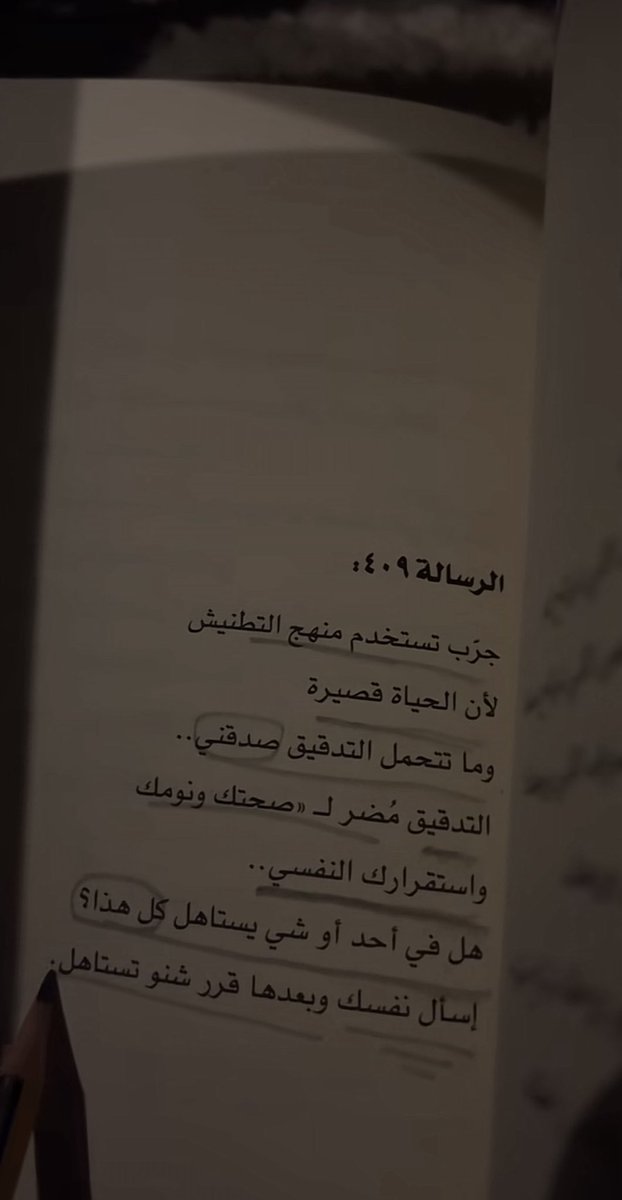 الرسالة ٤٠٩:
جرَب تستخدم منهج التطنيش
لأن الحياة قصيرة
وما تتحمل التدقيق صدقني..
التدقيق مُضر لـ «صحتك ونومك
واستقرارك النفسي..
هل في أحد أو شي يستاهل كل هذا؟
إسأل نفسك وبعدها قرر شنو تستاهل.